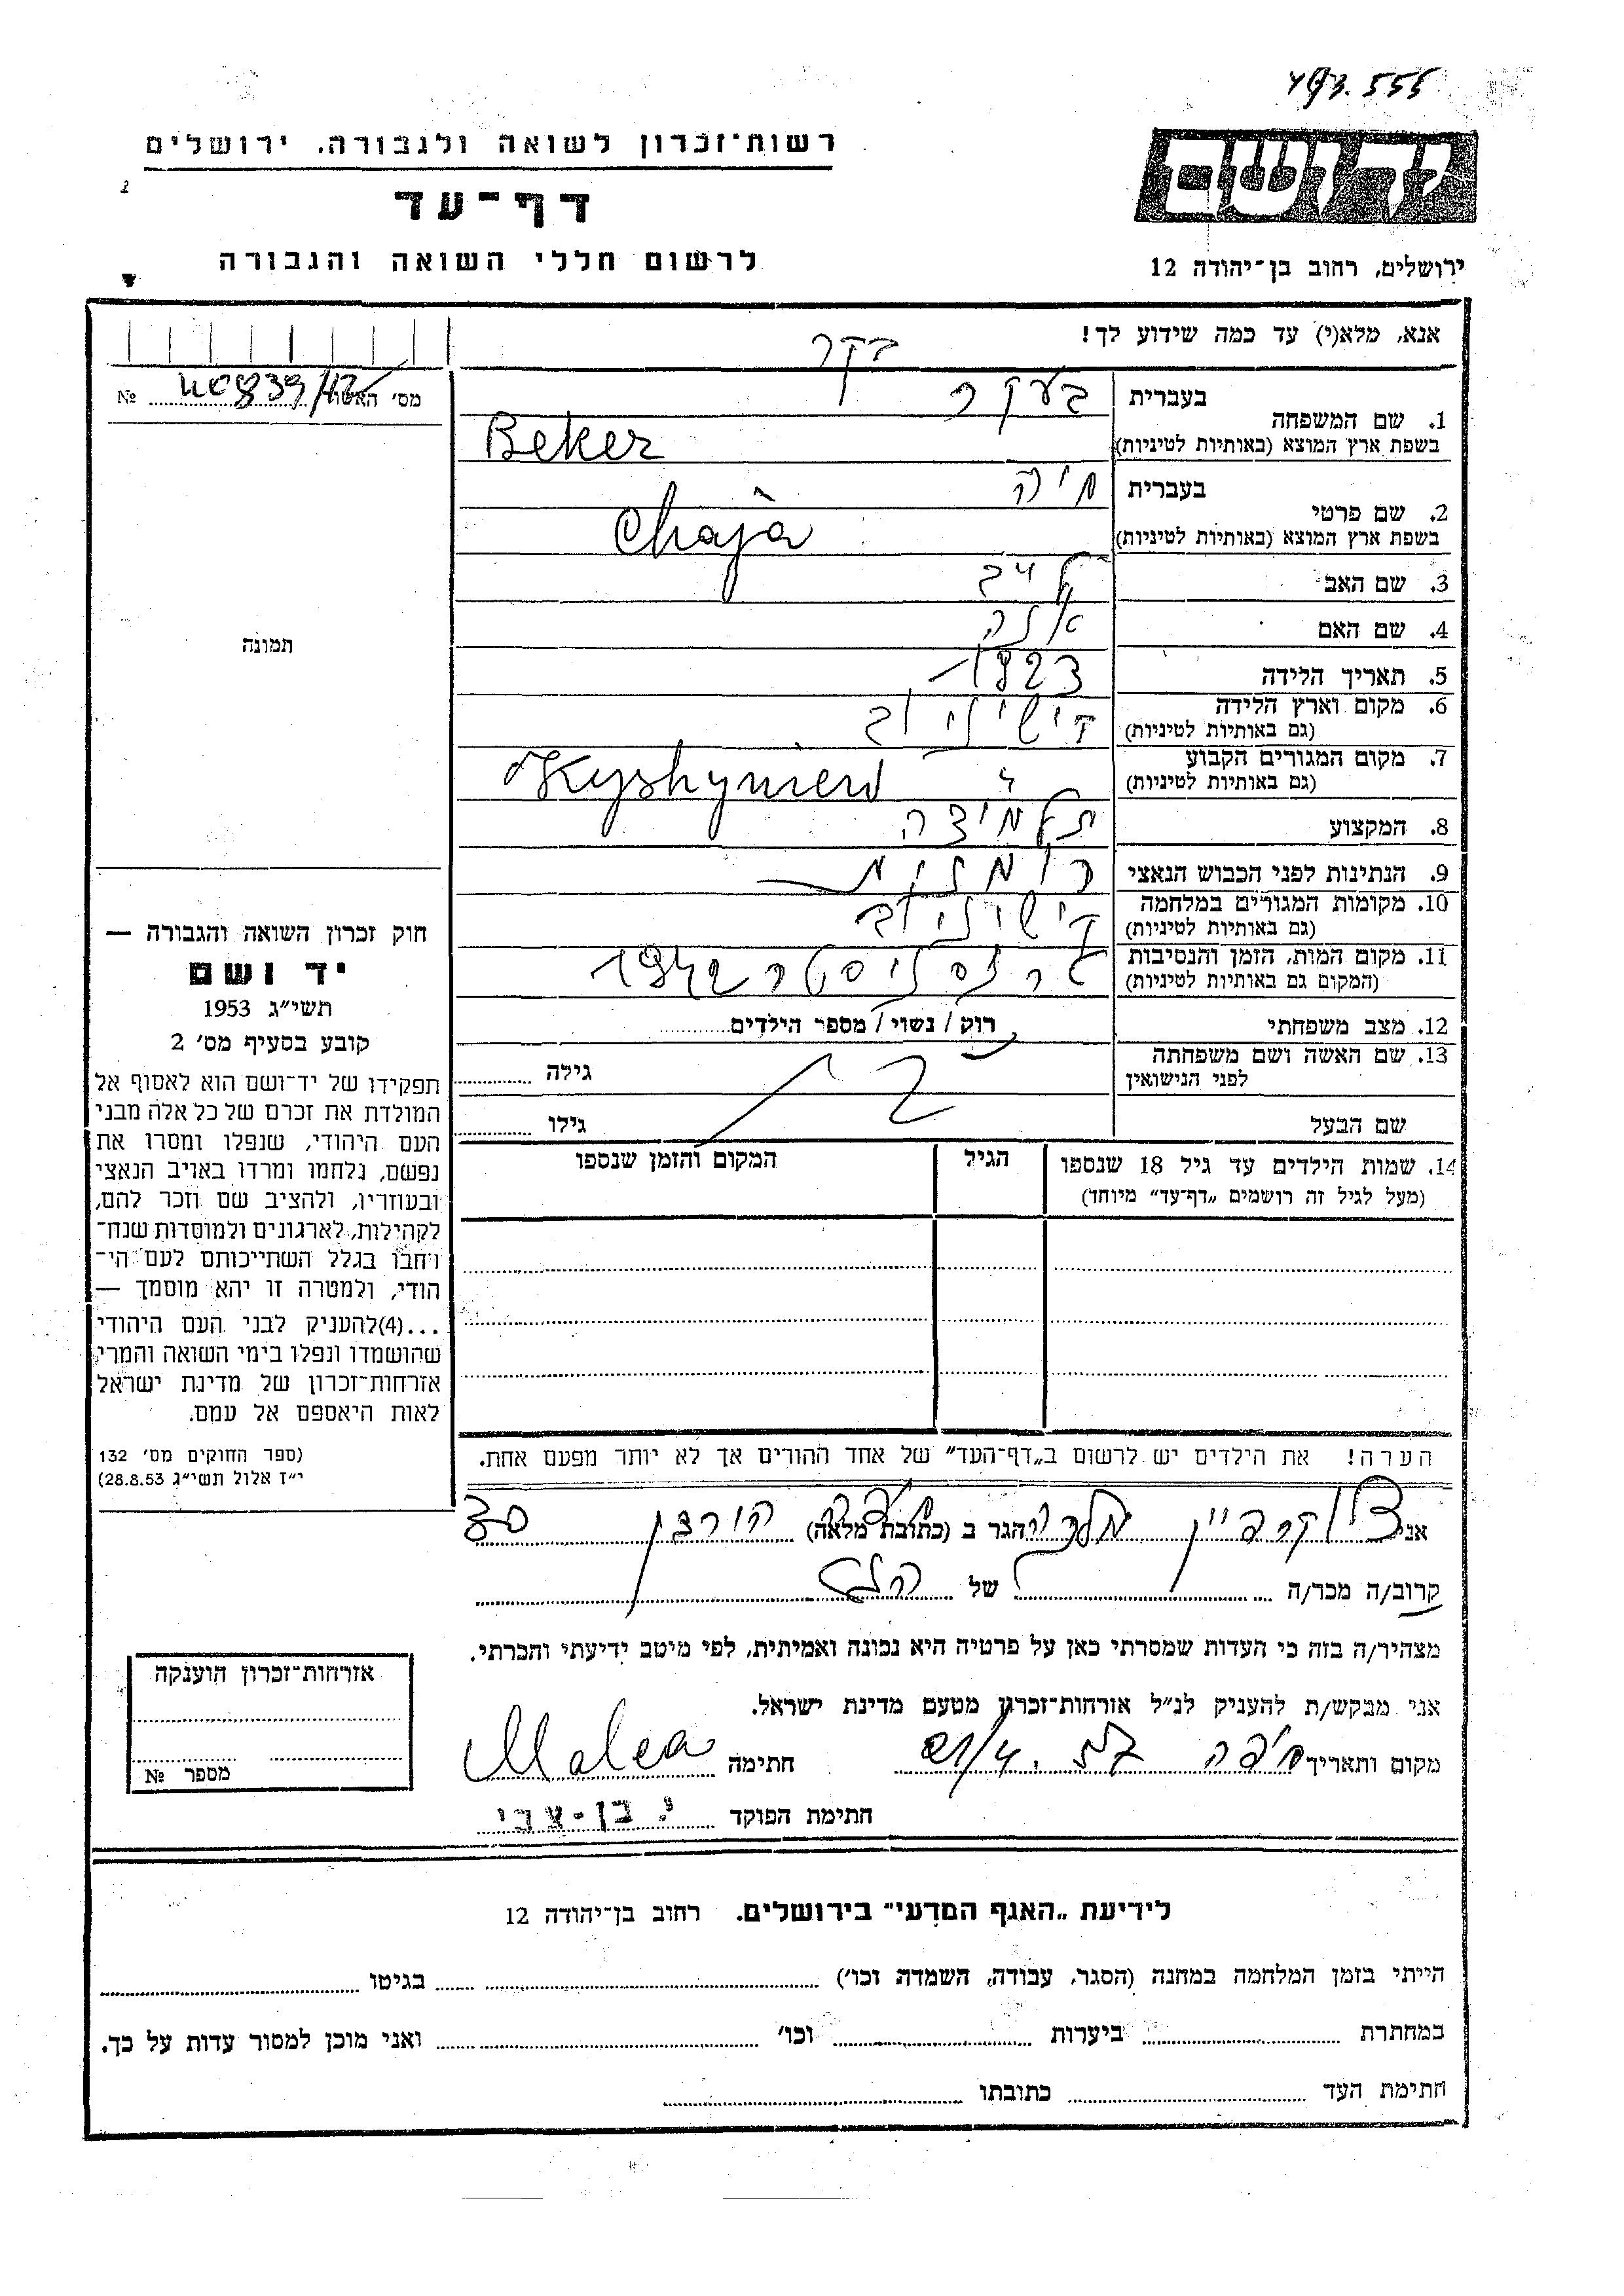 493.555
רשות־זכרון לשואה ולגבורה, ירושלים
דף־עד
לרשום חללי השואה והגבורה
יד ושם
ירושלים, רחוב בן־יהודה 12
אנא, מלא(י) עד כמה שידוע לך!
בקר
מס׳ האשה № 40839/42
1. שם המשפחה בעברית בעקר
בשפת ארץ המוצא (באותיות לטיניות) Beker
2. שם פרטי בעברית חיה
בשפת ארץ המוצא (באותיות לטיניות) Chaja
3. שם האב
4. שם האם
5. תאריך הלידה 1923
6. מקום וארץ הלידה (גם באותיות לטיניות) קישינוב
7. מקום המגורים הקבוע (גם באותיות לטיניות) Kyshyniew
8. המקצוע תלמידה
9. הנתינות לפני הכבוש הנאצי רומנית
10. מקומות המגורים במלחמה (גם באותיות לטיניות) קישינוב
11. מקום המות, הזמן והנסיבות (המקום גם באותיות לטיניות) טרנסניסטר 1942
12. מצב משפחתי רוק / נשוי / מספר הילדים
13. שם האשה ושם משפחתה לפני הנישואין גילה
שם הבעל גילו
14. שמות הילדים עד גיל 18 שנספו הגיל המקום והזמן שנספו
(מעל לגיל זה רושמים „דף־עד” מיוחד)
הערה! את הילדים יש לרשום ב„דף־העד” של אחד ההורים אך לא יותר מפעם אחת.
תמונה
חוק זכרון השואה והגבורה —
יד ושם
תשי״ג 1953
קובע בסעיף מס׳ 2
תפקידו של יד־ושם הוא לאסוף אל
המולדת את זכרם של כל אלה מבני
העם היהודי, שנפלו ומסרו את
נפשם, נלחמו ומרדו באויב הנאצי
ובעוזריו, ולהציב שם וזכר להם,
לקהילות, לארגונים ולמוסדות שנח־
רבו בגלל השתייכותם לעם הי־
הודי, ולמטרה זו יהא מוסמך —
...(4) להעניק לבני העם היהודי
שהושמדו ונפלו בימי השואה והמרי
אזרחות־זכרון של מדינת ישראל
לאות היאספם אל עמם.
(ספר החוקים מס׳ 132
י״ז אלול תשי״ג 28.8.53)
אני צוקרמיין מלכה הגר ב (כתובת מלאה) חיפה 30
קרוב/ה מכר/ה של הנ״ל
מצהיר/ה בזה כי העדות שמסרתי כאן על פרטיה היא נכונה ואמיתית, לפי מיטב ידיעתי והכרתי.
אני מבקש/ת להעניק לנ״ל אזרחות־זכרון מטעם מדינת ישראל.
מקום ותאריך חיפה 21/4. 57 חתימה Malca
חתימת הפוקד י. בן-צבי
אזרחות־זכרון הוענקה
מספר №
לידיעת „האגף המדעי” בירושלים. רחוב בן־יהודה 12
הייתי בזמן המלחמה במחנה (הסגר, עבודה, השמדה וכו׳) בגיטו
במחתרת ביערות וכו׳ ואני מוכן למסור עדות על כך.
חתימת העד כתובתו